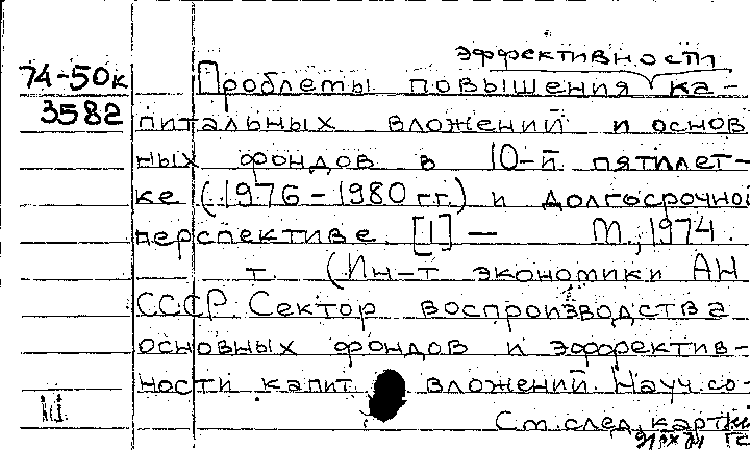 эффективности
74-50к Проблемы повышения ка-
3582 питальных вложений и основ
ных фондов в 10-й пятилет-
ке (1976-1980 гг.) и долгосрочной
перспективе. [1] — М., 1974.
т. (Ин-т экономики АН
СССР. Сектор воспроизводства
основных фондов и эффектив-
ности капит. вложений. Науч. со-
См. след. картки